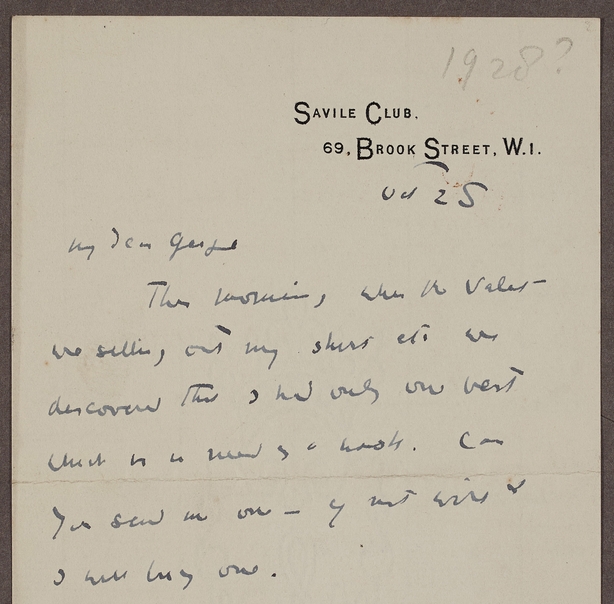 1928?
SAVILE CLUB.
69, BROOK STREET, W.1.
Oct 25
My dear George
This morning, when the Valet
was selling out my shirt etc we
discovered that I had only one vest
which is in need of a wash. Can
you send me one — if not wire &
I will buy one.